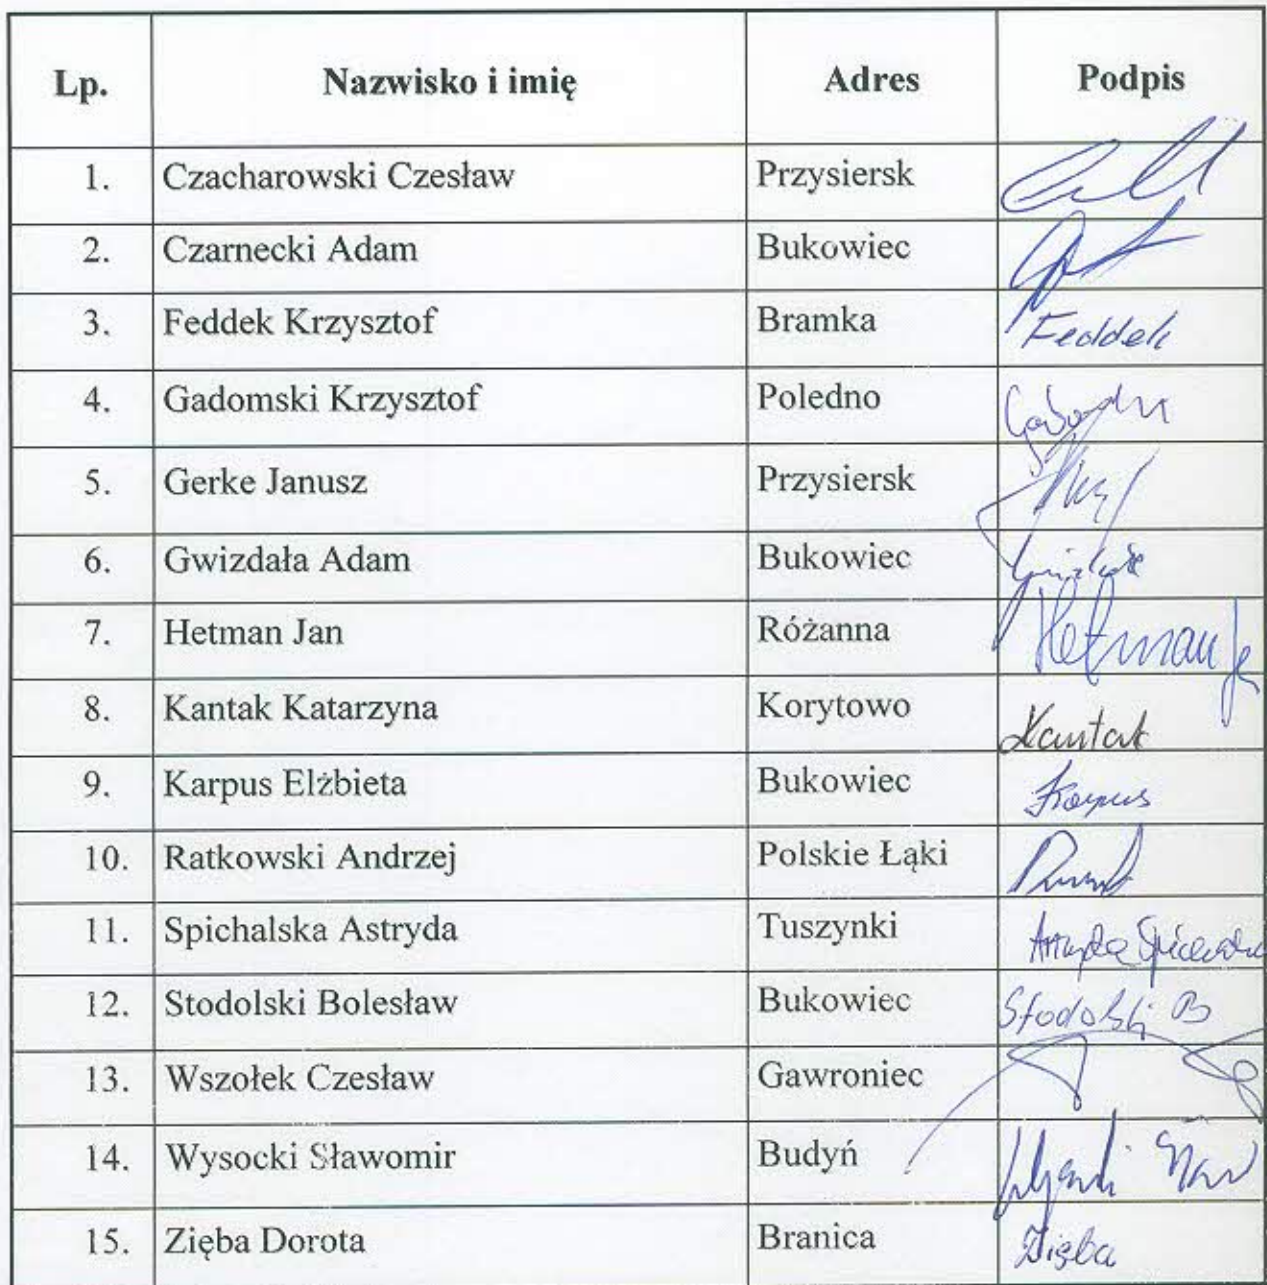 Lp. Nazwisko i imię Adres Podpis
1. Czacharowski Czesław Przysiersk
2. Czarnecki Adam Bukowiec
3. Feddek Krzysztof Bramka Feddek
4. Gadomski Krzysztof Poledno
5. Gerke Janusz Przysiersk
6. Gwizdała Adam Bukowiec
7. Hetman Jan Różanna Hetman
8. Kantak Katarzyna Korytowo Kantak
9. Karpus Elżbieta Bukowiec Karpus
10. Ratkowski Andrzej Polskie Łąki
11. Spichalska Astryda Tuszynki
12. Stodolski Bolesław Bukowiec Stodolski B
13. Wszołek Czesław Gawroniec
14. Wysocki Sławomir Budyń
15. Zięba Dorota Branica Zięba